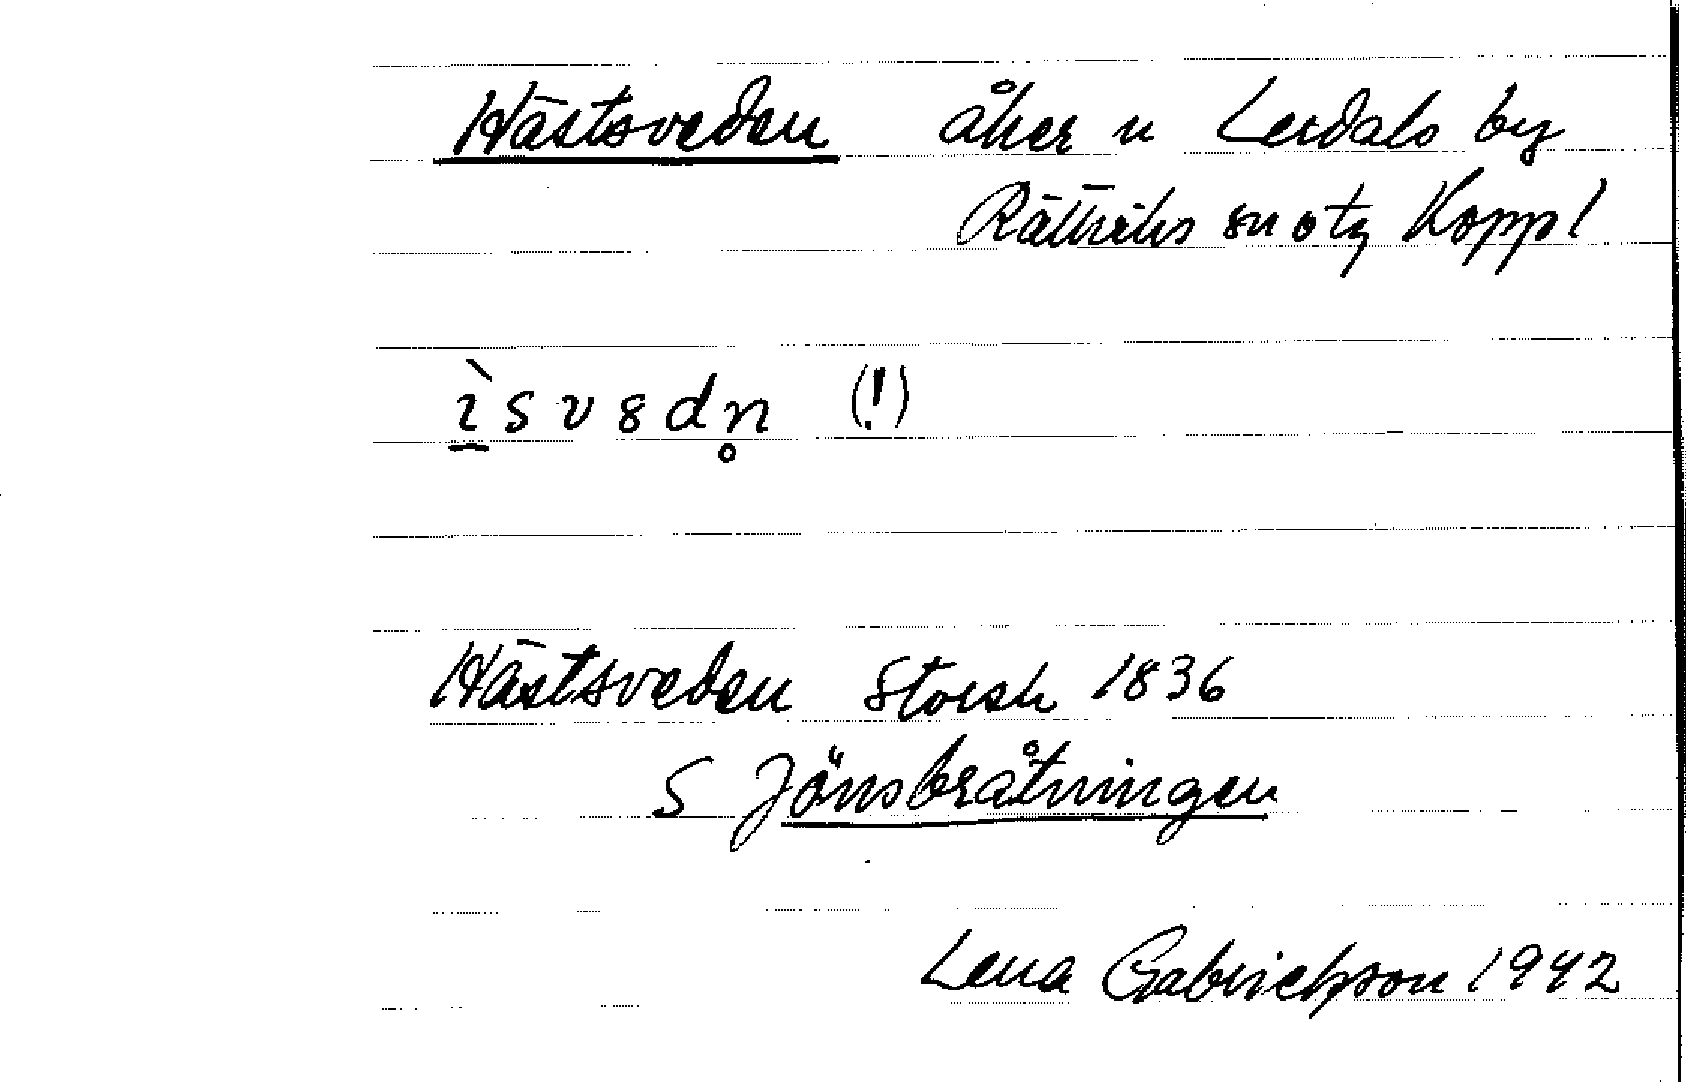 Hästsveden åker n Lerdals by
Rättviks sn o tg Koppl
ìsvedn̥ (!)
Hästsveden Storsk 1836
S Jönsbråtningen
Lena Gabrielsson 1942